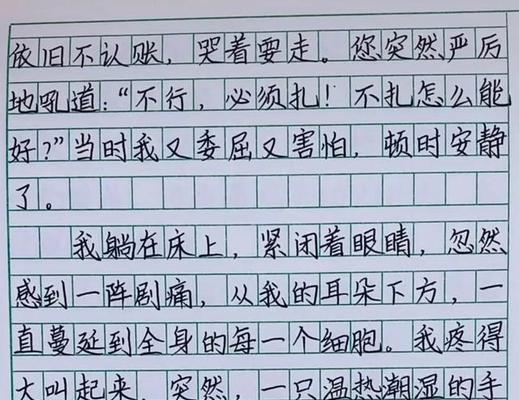 依旧不认账，哭着要走。您突然严厉
地吼道：“不行，必须扎！不扎怎么能
好？”当时我又委屈又害怕，顿时安静
了。
我躺在床上，紧闭着眼睛，忽然
感到一阵剧痛，从我的耳朵下方，一
直蔓延到全身的每一个细胞。我疼得
大叫起来，突然，一只温热潮湿的手